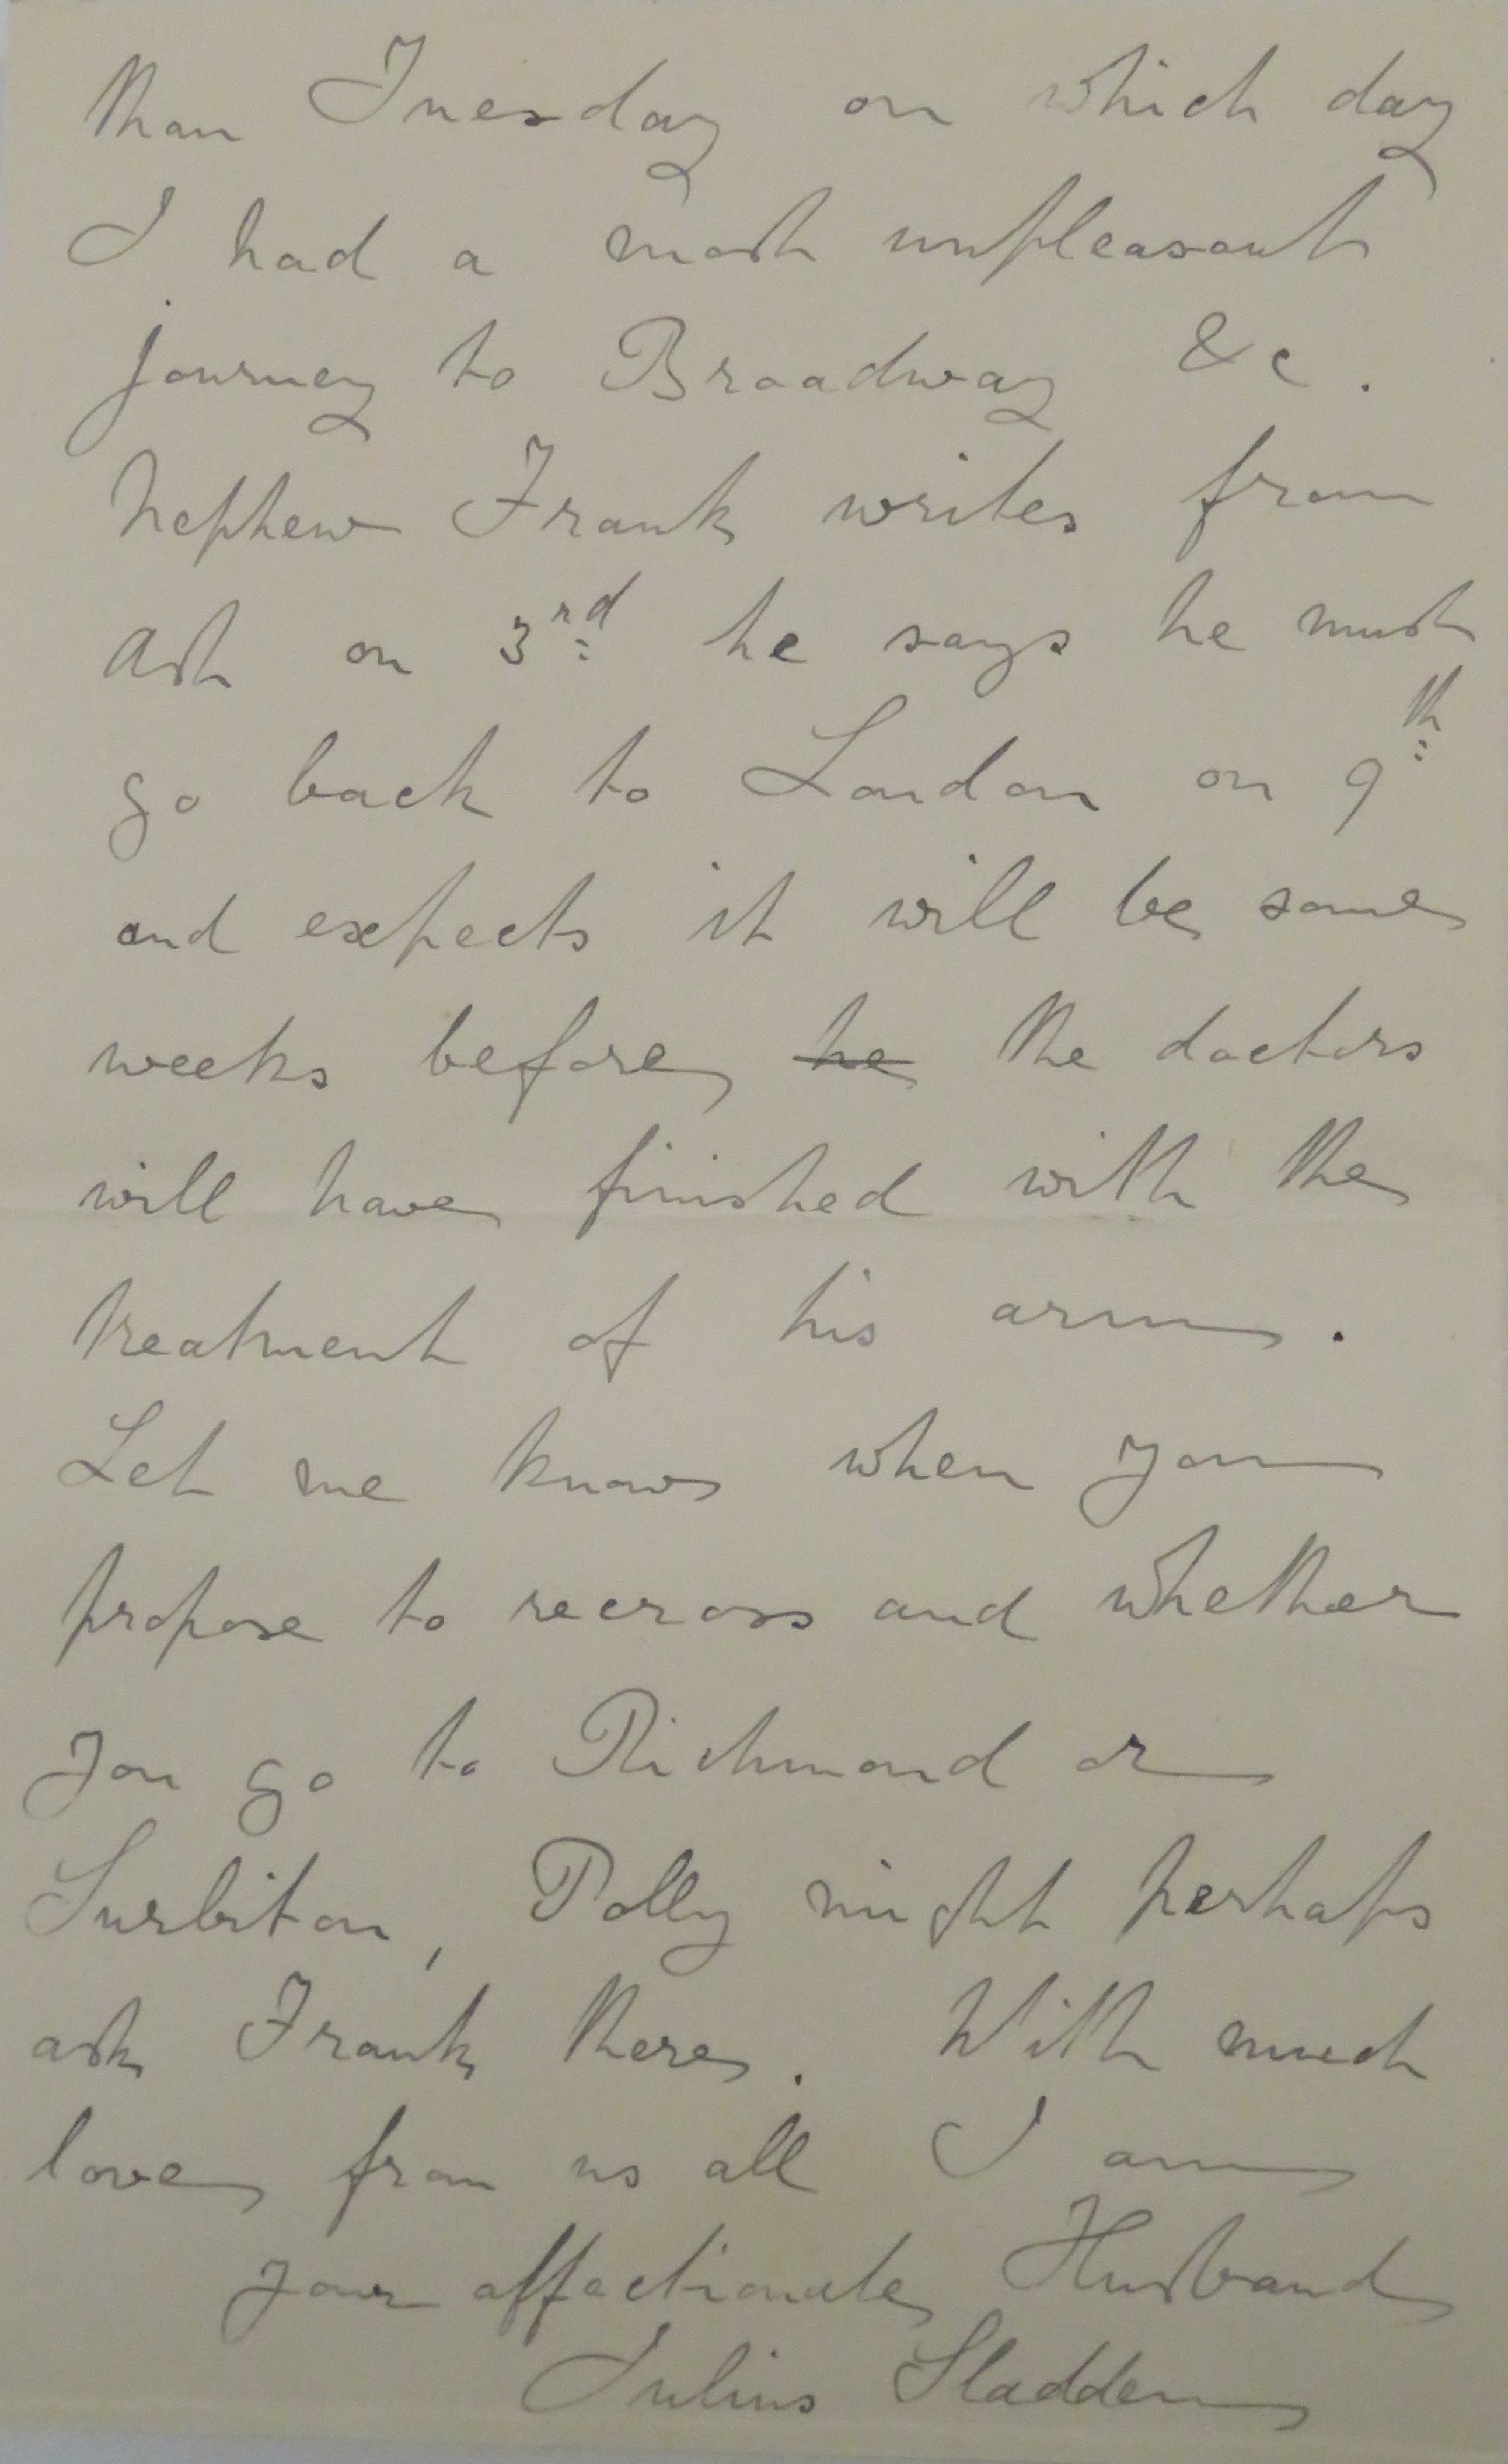 than Tuesday on which day
I had a most unpleasant
journey to Broadway &c.
Nephew Frank writes from
Ash on 3rd he says he must
go back to London on 9th
and expects it will be some
weeks before he the doctors
will have finished with the
treatment of his arm.
Let me know when you
propose to recross and whether
you go to Richmond or
Surbiton, Polly might perhaps
ask Frank there. With much
love from us all I am
your affectionate Husband
Julius Sladden